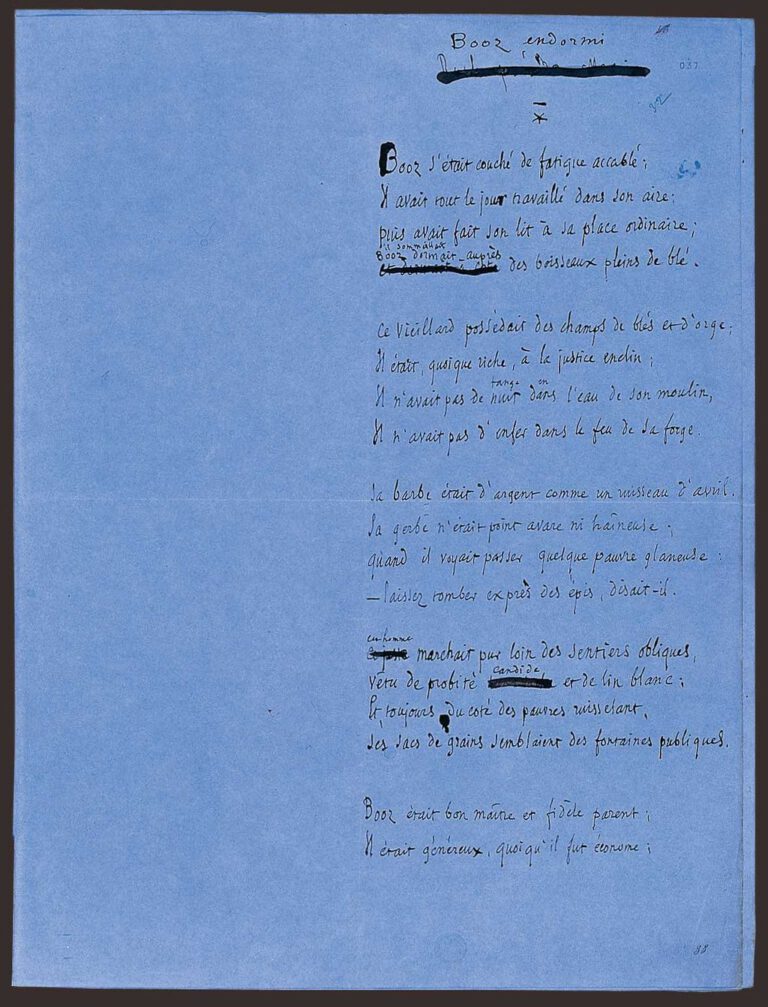 Booz endormi
037
Booz s'était couché de fatigue accablé;
Il avait tout le jour travaillé dans son aire;
puis avait fait son lit à sa place ordinaire;
il sommeillait
Booz dormait auprès
des boisseaux pleins de blé.
Ce vieillard possédait des champs de blés et d'orge;
Il était, quoique riche, à la justice enclin;
fange en
Il n'avait pas de nuit dans l'eau de son moulin,
Il n'avait pas d'enfer dans le feu de sa forge.
Sa barbe était d'argent comme un ruisseau d'avril.
Sa gerbe n'était point avare ni haîneuse;
quand il voyait passer quelque pauvre glaneuse:
— laissez tomber exprès des épis, disait-il.
cet homme
marchait pur loin des sentiers obliques,
candide
vêtu de probité et de lin blanc;
Et, toujours du côté des pauvres ruisselant,
ses sacs de grains semblaient des fontaines publiques.
Booz était bon maître et fidèle parent;
Il était généreux, quoiqu'il fut économe;
33